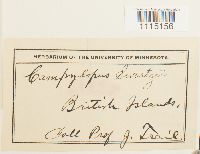 1115156
HERBARIUM OF THE UNIVERSITY OF MINNESOTA.
Campylopus
British Islands.
Coll Prof J.